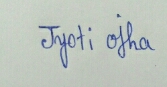 Jyoti ojha